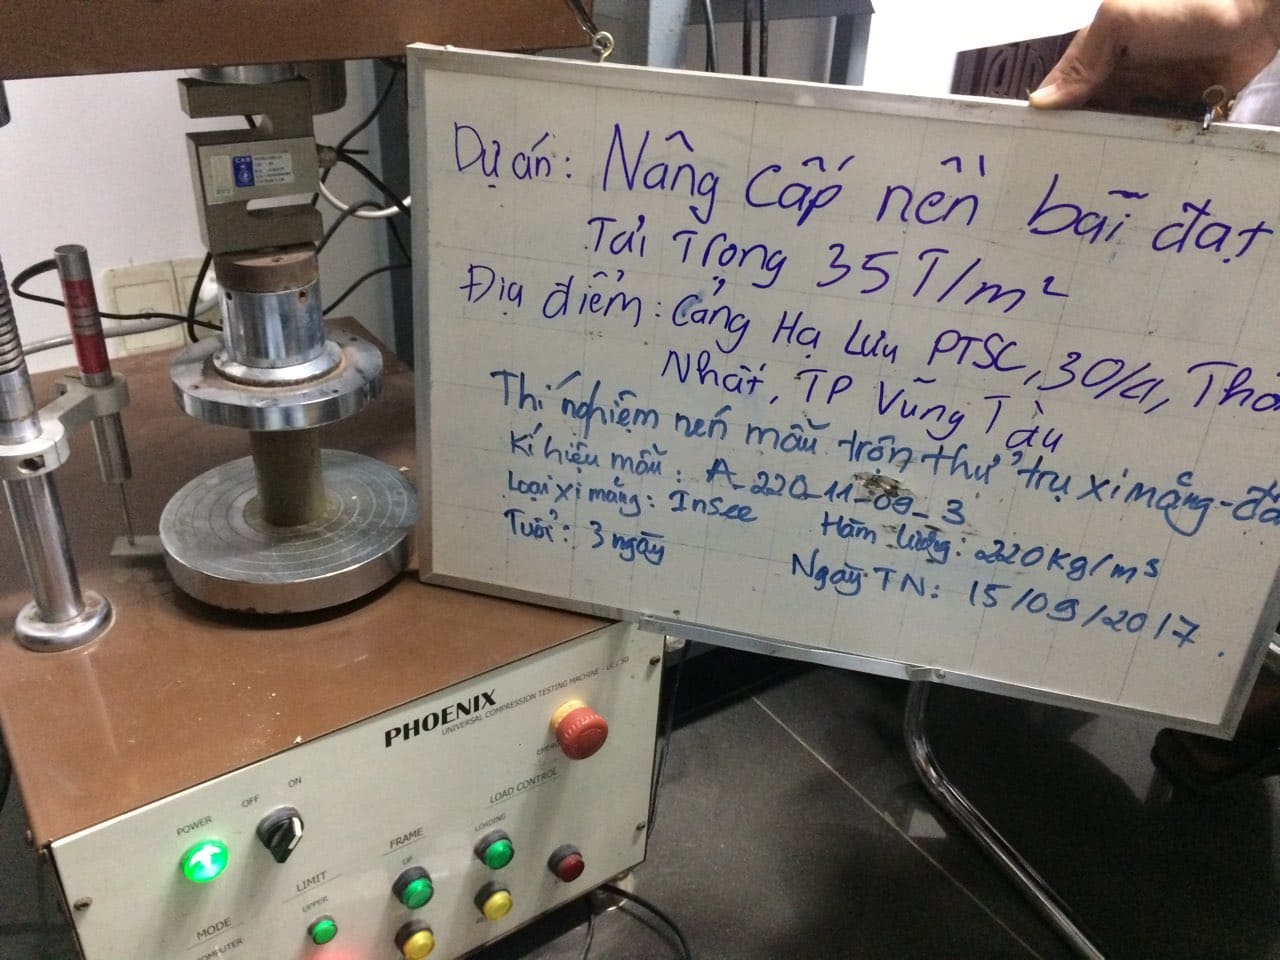 Dự án: Nâng cấp nền bãi đạt
Tải Trọng 35T/m²
Địa điểm: Cảng Hạ Lưu PTSC, 30/4,
Nhất, TP Vũng Tàu
Thí nghiệm nén mẫu trộn thử trụ xi măng-đấ
Kí hiệu mẫu: A_220_11_09_3
Loại xi măng: Insee Hàm lượng: 220kg/m³
Tuổi: 3 ngày Ngày TN: 15/09/2017.
CAS
PHOENIX
UNIVERSAL COMPRESSION TESTING MACHINE
LOAD CONTROL
ON
OFF
POWER
FRAME
LOADING
UP
LIMIT
UPPER
MODE